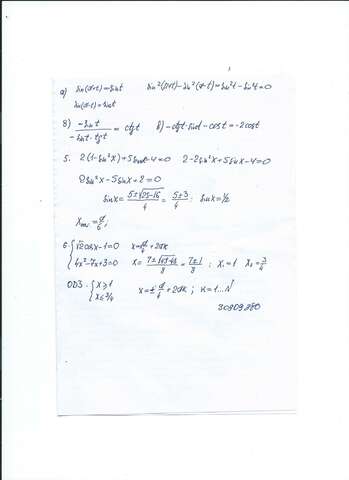 a) sin(π+t)=-sint sin²(π+t)-sin²(π-t)=sin²t-sin²t=0
sin(π-t)=sint
в) -sint / -sint·tgt = ctgt б) -ctgt·sint-cost=-2cost
5. 2(1-sin²x)+5sinx-4=0 2-2sin²x+5sinx-4=0
2sin²x-5sinx+2=0
sinx= 5±√25-16 / 4 = 5±3 / 4 ; sinx=1/2
x = π/6 ;
6. { √2cosx-1=0 x=π/4+2πk
4x²-7x+3=0 x= 7±√49-48 / 8 = 7±1 / 8 ; x₁=1 x₂=3/4
ОДЗ. { x≥1
x≤3/4 x=±π/4+2πk ; k=1...N
30909980